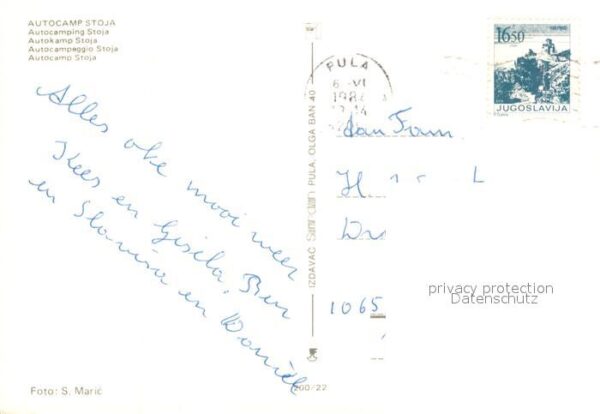 AUTOCAMP STOJA
Autocamping Stoja
Autokamp Stoja
Autocampeggio Stoja
Autocamp Stoja
Alles oke mooi weer
Kees en Gisela, Ben
en Slaviša en Daniël
Foto: S. Marić
IZDAVAČ PULA, OLGA BAN 40
PULA
6 -VI
198
14
16.50
JUGOSLAVIJA
Aan Fam
H
1065
privacy protection
Datenschutz
200/22